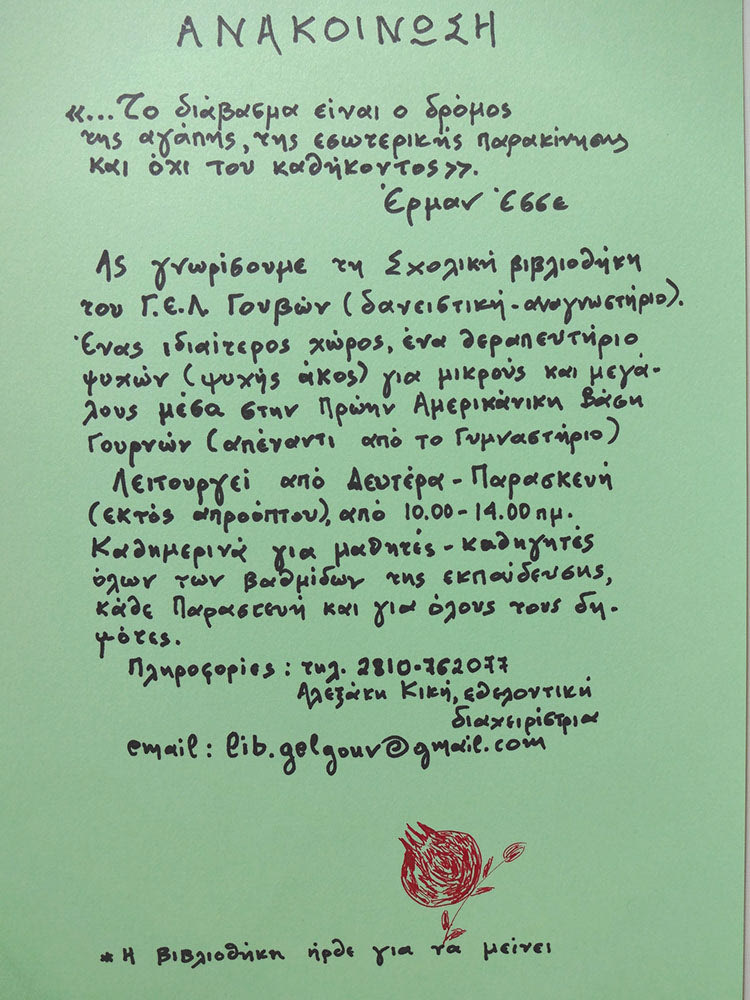 ΑΝΑΚΟΙΝΩΣΗ
«...Το διάβασμα είναι ο δρόμος
της αγάπης, της εσωτερικής παρακίνησης
και όχι του καθήκοντος».
Έρμαν Έσσε
Ας γνωρίσουμε τη Σχολική βιβλιοθήκη
του Γ.Ε.Λ. Γουβών (δανειστική-αναγνωστήριο).
Ένας ιδιαίτερος χώρος, ένα θεραπευτήριο
ψυχών (ψυχής άκος) για μικρούς και μεγά-
λους μέσα στην Πρώην Αμερικάνικη Βάση
Γουρνών (απέναντι από το Γυμναστήριο)
Λειτουργεί από Δευτέρα-Παρασκευή
(εκτός απροόπτου), από 10.00-14.00 πμ.
Καθημερινά για μαθητές-καθηγητές
όλων των βαθμίδων της εκπαίδευσης,
κάθε Παρασκευή και για όλους τους δη-
μότες.
Πληροφορίες: τηλ. 2810-762077
Αλεξάκη Κική, εθελοντική
διαχειρίστρια
email: lib.gelgouv@gmail.com
*Η βιβλιοθήκη ήρθε για να μείνει